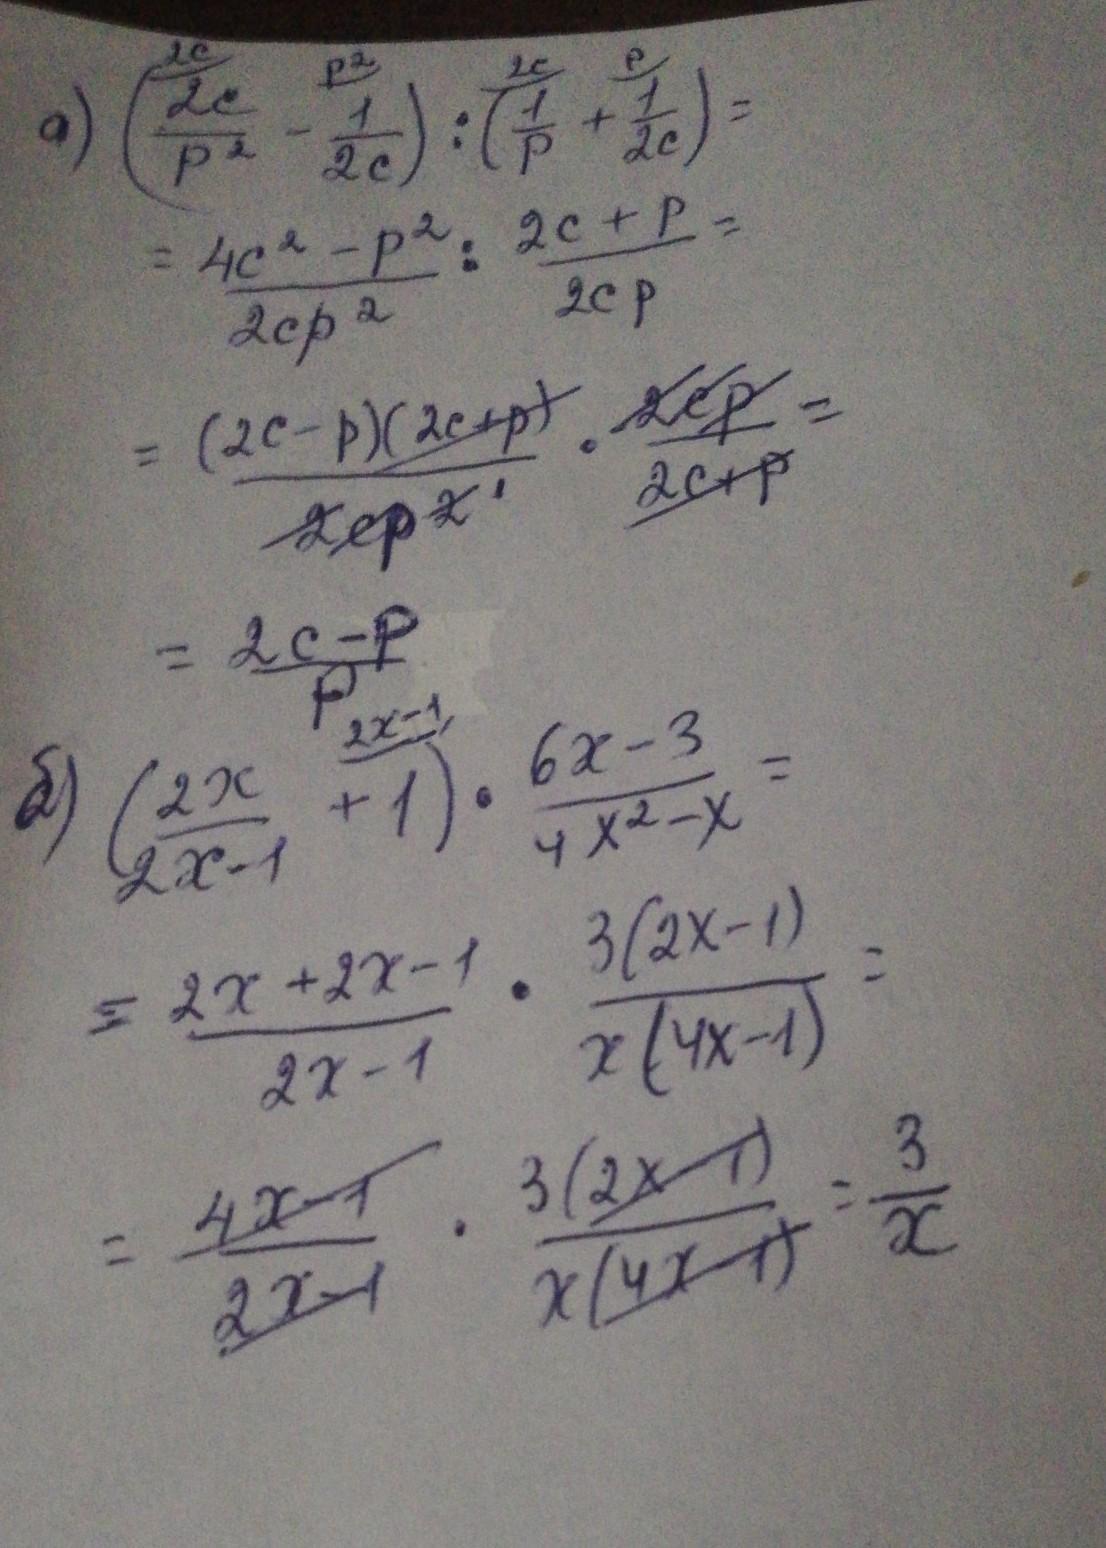 а) (2c/p² - 1/2c) : (1/p + 1/2c) =
2c p² 2c p
= 4c² - p²/2cp² : 2c + p/2cp =
= (2c - p)(2c + p)/2cp² ¹ · 2cp/2c + p =
= 2c - p/p
б) (2x/2x - 1 + 1) · 6x - 3/4x² - x =
2x - 1
= 2x + 2x - 1/2x - 1 · 3(2x - 1)/x(4x - 1) =
= 4x - 1/2x - 1 · 3(2x - 1)/x(4x - 1) = 3/x